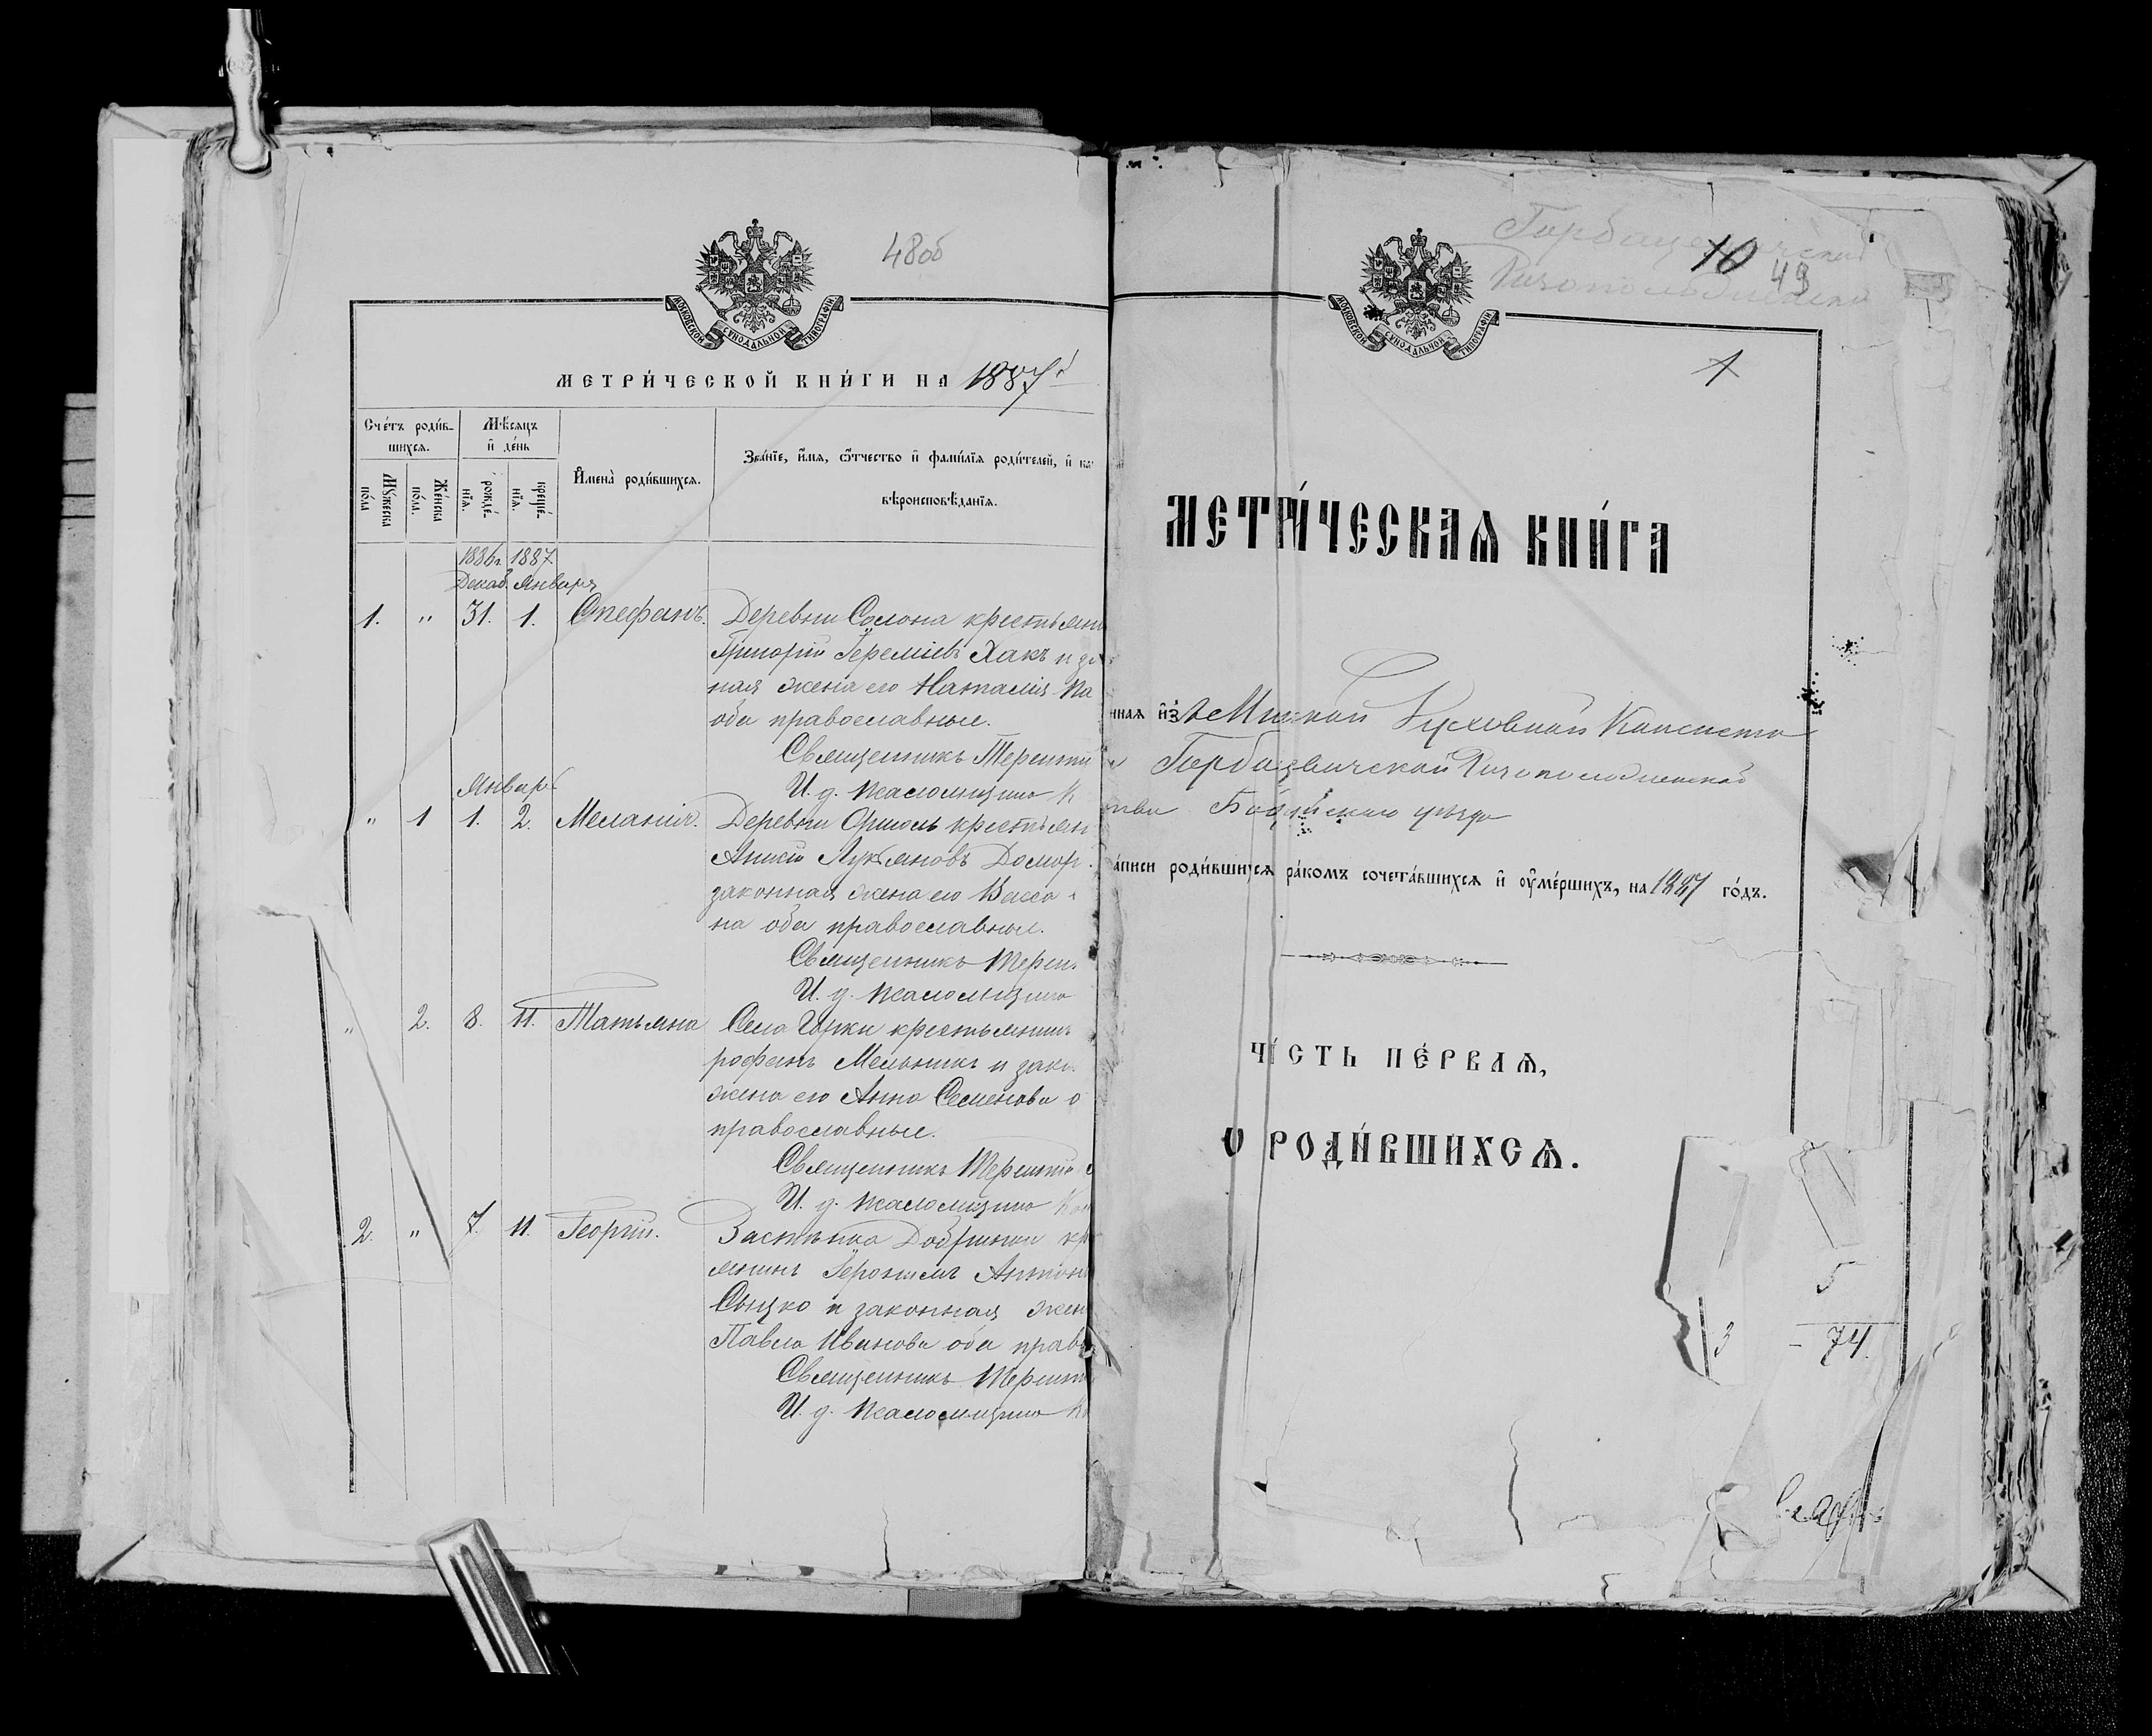 48об
МОСКОВСКОЙ СѴНОДАЛЬНОЙ ТИПОГРАФІИ
МЕТРИ́ЧЕСКОЙ КНИ́ГИ НА 1887 г.
Сче́тъ роди́в-
шихся.
Мѣ́сяцъ
и҆ де́нь
Мꙋ́жеска
по́ла
Же́нска
по́ла.
рожде́-
нїѧ.
креще́-
нїѧ.
И҆мена̀ роди́вшихсѧ.
Зва́нїе, и҆́мѧ, ѻ҆́тчество и҆ фами́лїѧ роди́телей, и҆ ка
вѣроисповѣ́данїѧ.
1886 г. 1887
Декаб. Января
1. " 31. 1. Стефанъ. Деревни Солона крестьяни
Григорій Іереміевъ Хакъ и за
ная жена его Наталія Па
оба православные.
Священникъ Терентій
И. д. псаломщика К
Январь
" 1 1. 2. Меланія. Деревни Орсоль крестьян
Лукьяновъ Домор
законная жена его Васса
на оба православные.
Священникъ Терен
И. д. псаломщика
" 2. 8. 11. Татьяна Села Горки крестьянинъ
рофанъ Мельникъ и зако
жена его Анна Семенова о
православные.
Священникъ Терентій
И. д. псаломщика Ко
2. " 7. 11. Георгій. Застѣнка Добринки кр
янинъ Іеронимъ Антоно
Сыцко и законная жен
Павла Иванова оба право
Священникъ Терентій
И. д. псаломщика Ко
Горбацевической
10
49
МОСКОВСКОЙ СѴНОДАЛЬНОЙ ТИПОГРАФІИ
1
МЕТРИ́ЧЕСКАѦ КНИ́ГА
ннаѧ и҆з̾ Минской Духовной Консисто
Горбацевической Ризоположенской
кви Бобруйскаго уѣзда
а́писи роди́вшихсѧ бра́комъ сочета́вшихсѧ и҆ ᲂу҆ме́ршихъ, на 1887 го́дъ.
ЧА́СТЬ ПЕ́РВАѦ,
Ѡ РОДИ́ВШИХСѦ.
5
3 - 74.